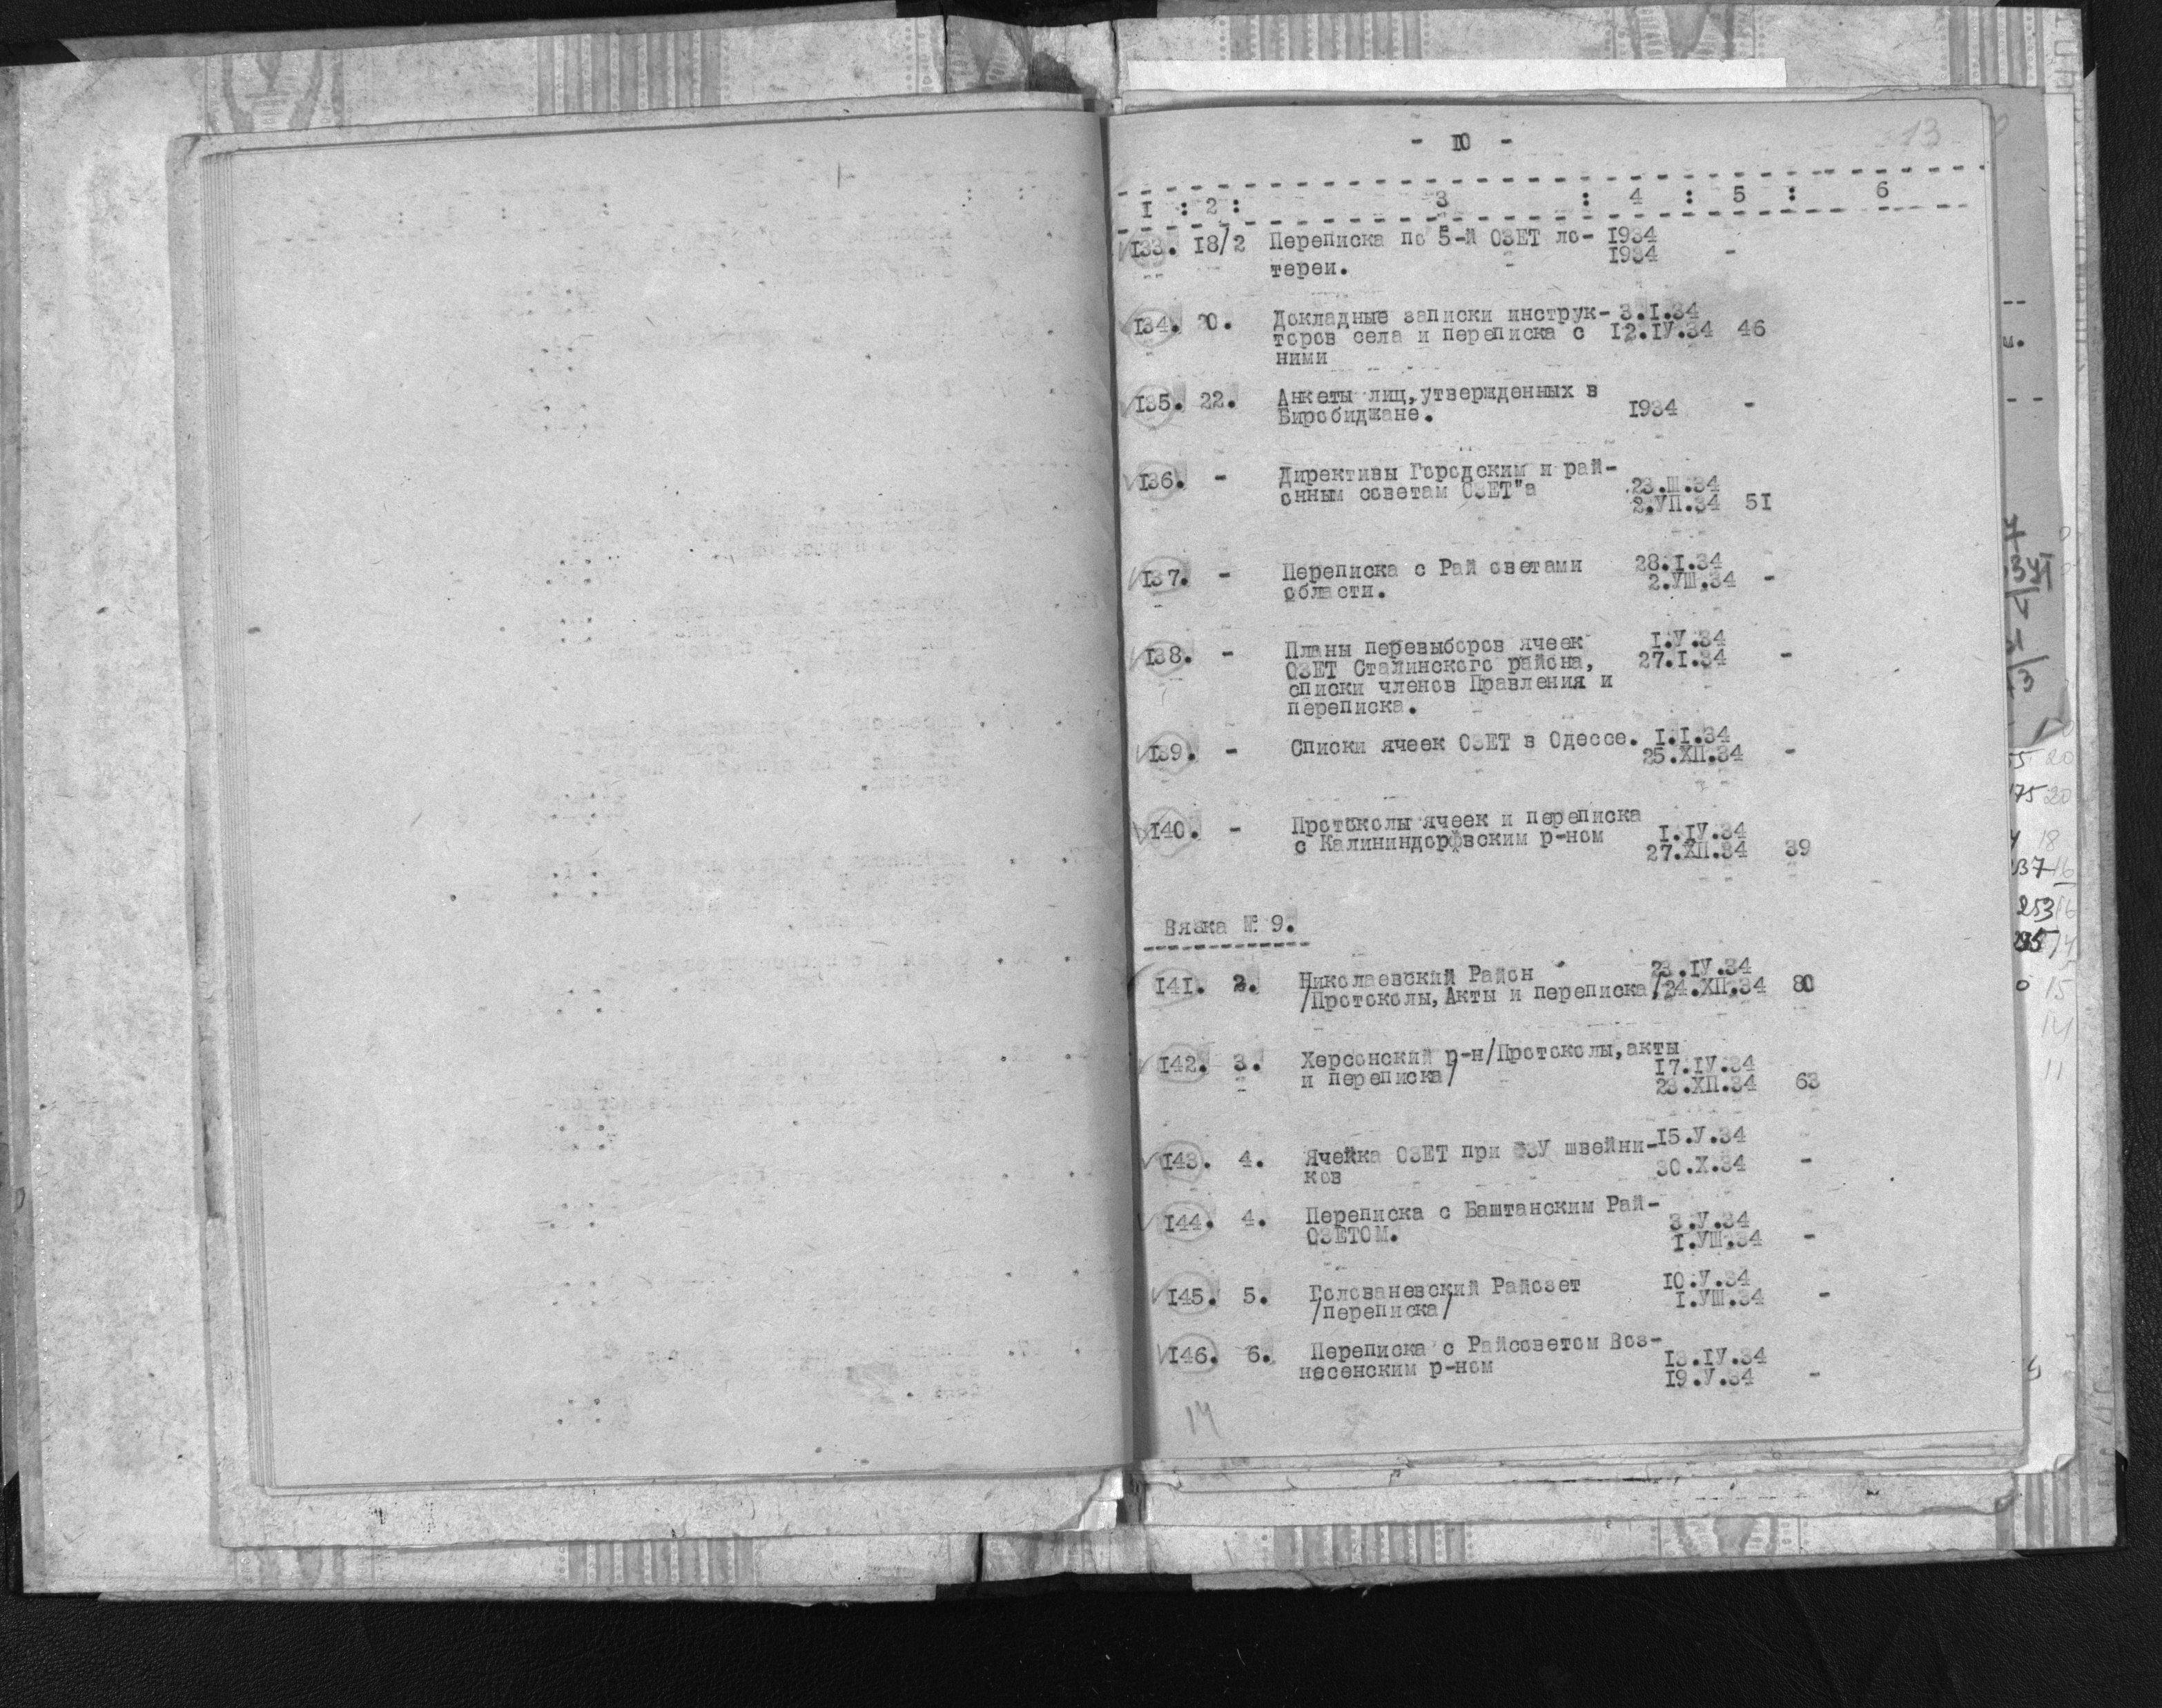 - 10 -
13
I : 2 : 3 : 4 : 5 : 6
133. 18/2 Переписка по 5-й ОЗЕТ ло- 1934
тереи. 1934 -
134. 20. Докладные записки инструк- 3.I.34
торов села и переписка с 12.IУ.34 46
ними
135. 22. Анкеты лиц, утвержденных в
Биробиджане. 1934 -
136. - Директивы Городским и рай-
онным советам ОЗЕТ"а 23.Ш.34
2.УП.34 51
137. - Переписка с Рай светами 28.I.34
области. 2.УШ.34 -
138. - Планы перевыборов ячеек I.У.34
ОЗЕТ Сталинского района, 27.I.34 -
списки членов Правления и
переписка.
139. - Списки ячеек ОЗЕТ в Одессе. I.I.34
25.ХП.34 -
140. - Протоколы ячеек и переписка
с Калининдорфвским р-ном I.IУ.34
27.ХП.34 39
Вязка № 9.
141. 2. Николаевский Район 23.IУ.34
/Протоколы, Акты и переписка/ 24.ХП.34 80
142. 3. Херсонский р-н/Протоколы, акты
и переписка/ 17.IУ.34
23.ХП.34 63
143. 4. Ячейка ОЗЕТ при ФЗУ швейни- 15.У.34
ков 30.Х.34 -
144. 4. Переписка с Баштанским Рай-
ОЗЕТОМ. 3.У.34
I.УШ.34 -
145. 5. Голованевский Райозет 10.У.34
/переписка/ I.УШ.34 -
146. 6. Переписка с Райсоветом Воз-
несенским р-ном 13.IУ.34
19.У.34 -
14